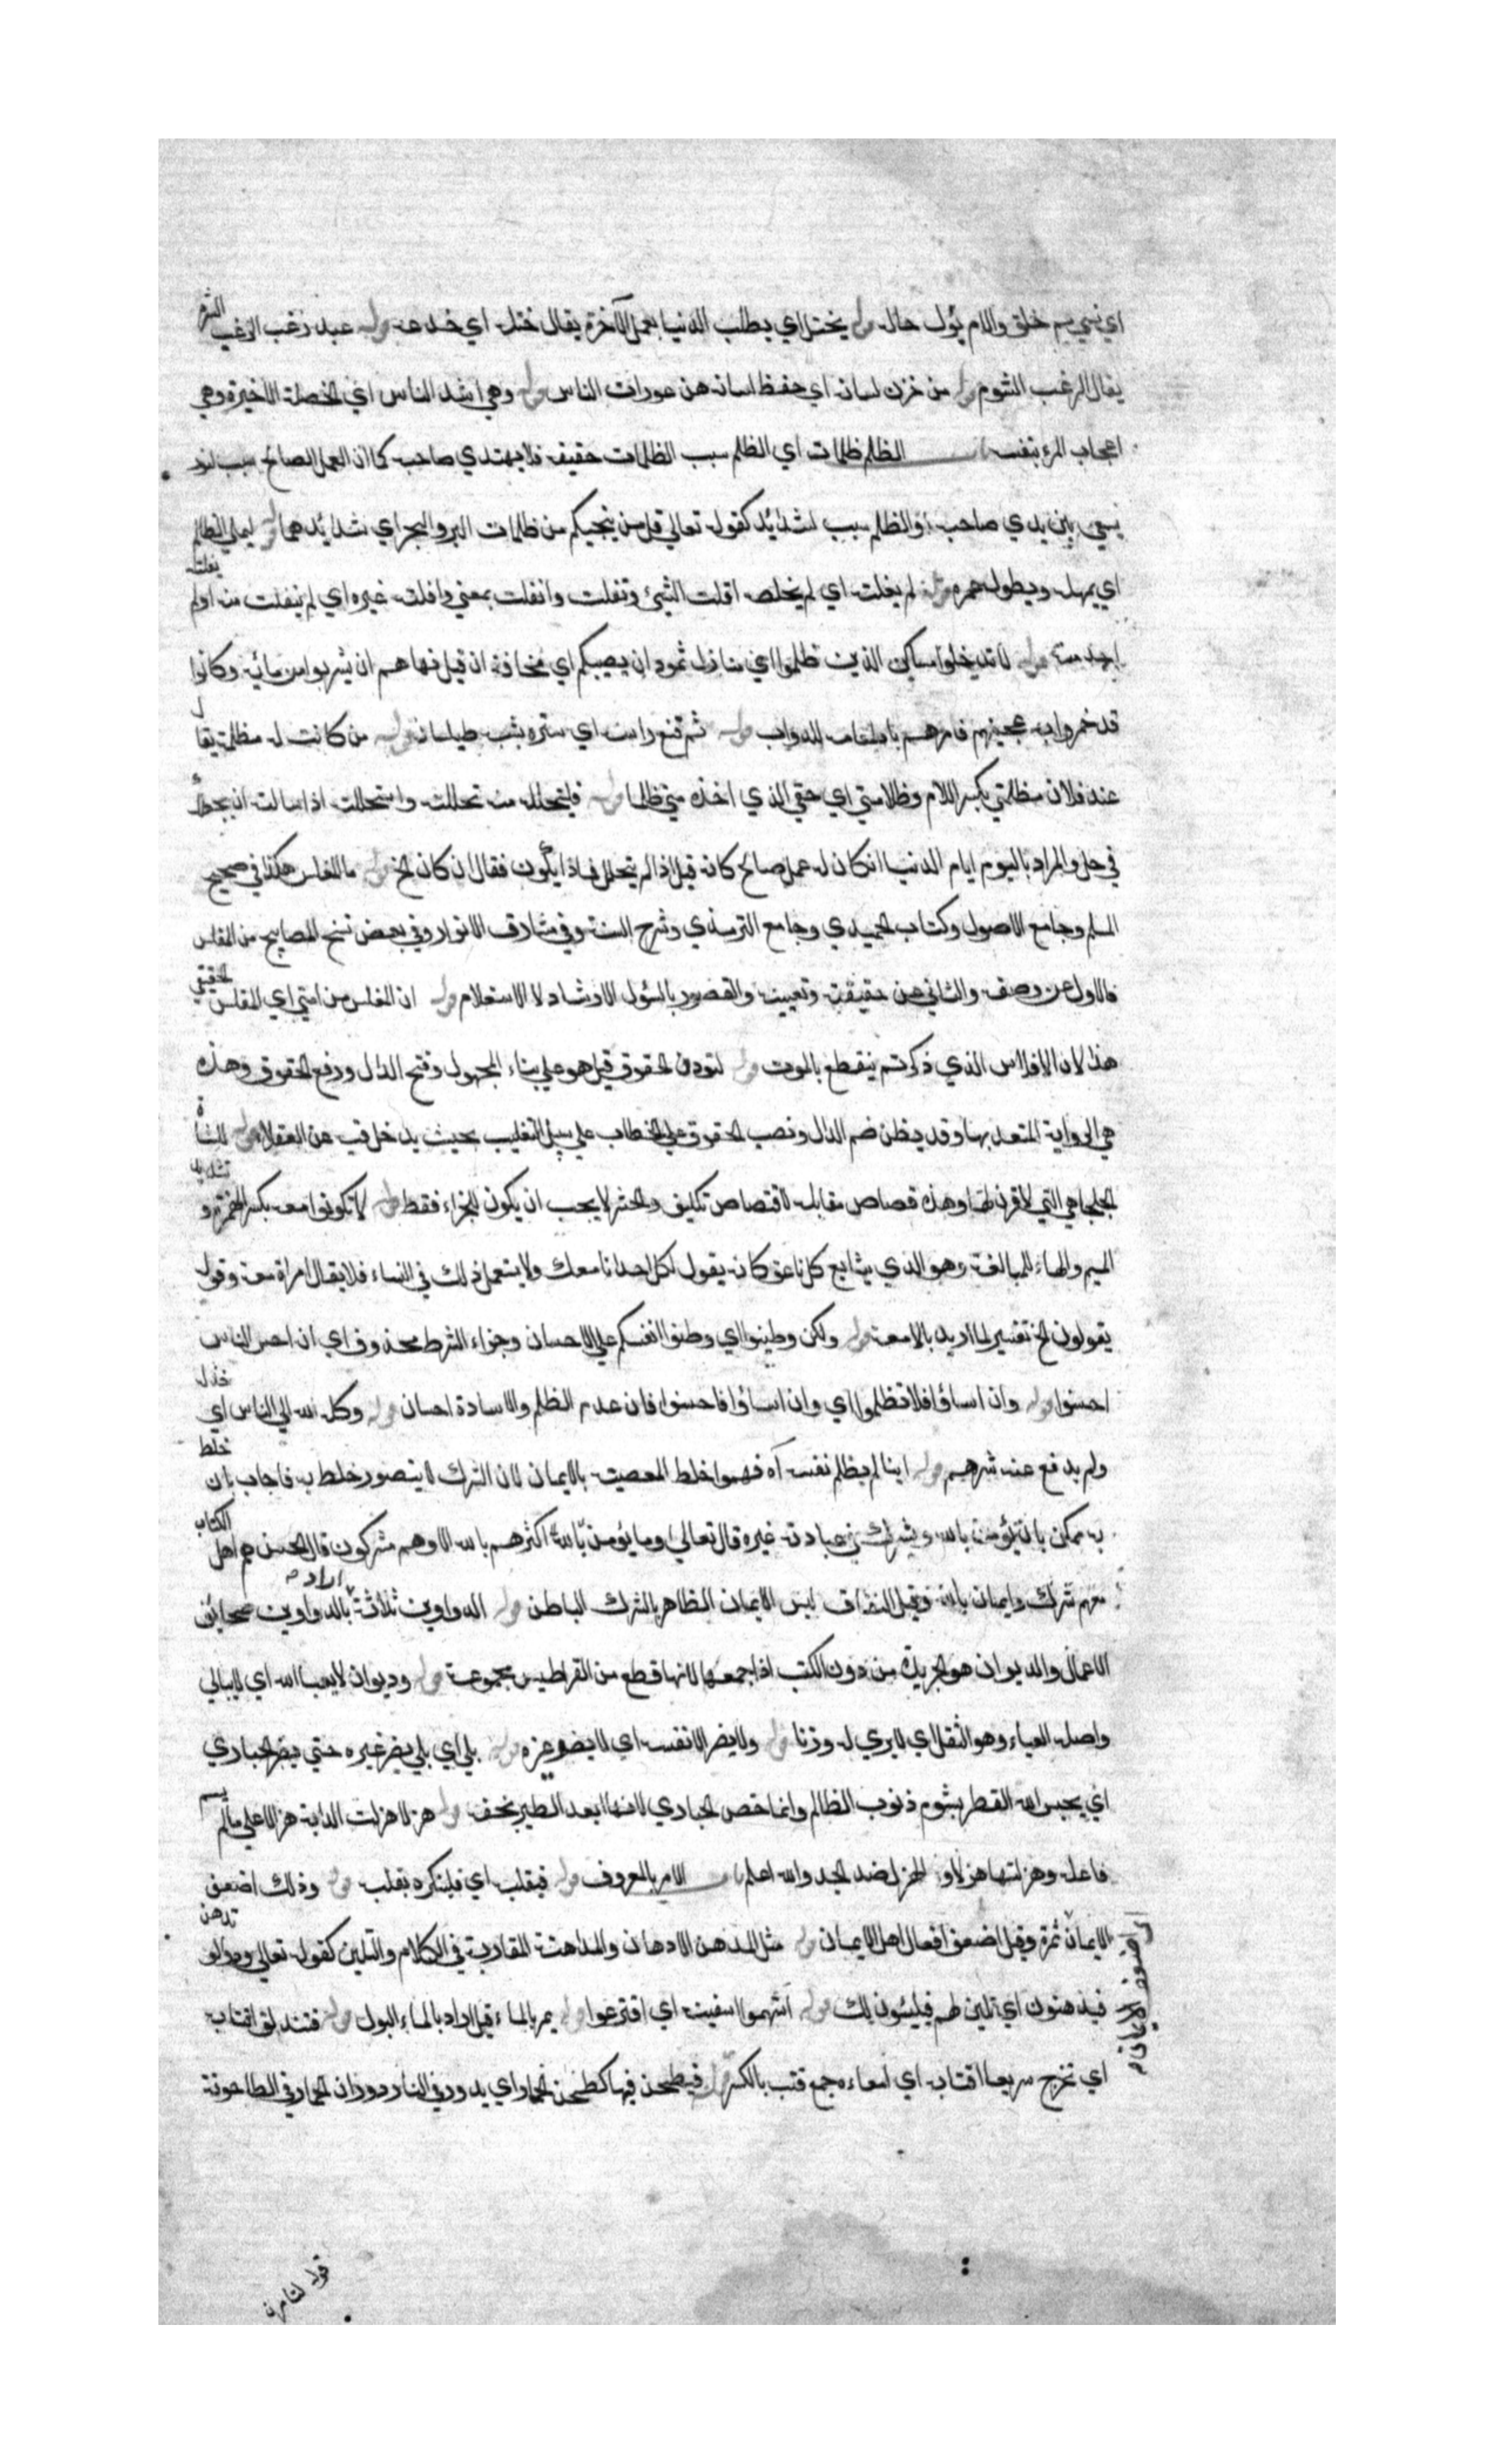 اي نسي بم خلق والام يؤل حاله قوله يختل اي يطلب الدنيا بعمل الآخرة يقال ختله اي خدعه قوله عبد رغب الرغب الشره
يقال الرغب الشوم قوله من خزن لسانه اي حفظ لسانه عن عورات الناس قوله وهي اشد الناس اي الخصلة الاخيرة وهي
اعجاب المرء بنفسه باب الظلم ظلمات اي الظلم سبب الظلمات حقيقة فلا يهتدي صاحبه كما ان العمل الصالح سبب لنور
يسعى بين يدي صاحبه او الظلم سبب لشدائد كقوله تعالي قل من ينجيكم من ظلمات البر والبحر اي شدائدهما قوله ليملي الظالم
اي يمهله ويطول عمره قوله لم يفلته اي لم يخلصه افلت الشيء وتفلت وانفلت بمعني وافلته غيره اي لم ينفلت منه اولم يفلته
احد منه قوله لا تدخلوا مساكن الذين ظلموا اعني منازل ثمود ان يصيبكم اي مخافة ان قيل نهاهم ان يشربوا من مائه وكانوا
قد خمروا به عجينهم فامرهم باطعامه للدواب قوله ثم قنع راسه اي ستره بثب طيلسان قوله من كانت له مظلمة يقال
عند فلان مظلمتي بكسر اللام وظلامتي اي حقي الذي اخذه مني ظلما قوله فليتحلله منه تحللته واستحللته اذا سالته ان يجعلك
في حل والمراد باليوم ايام الدنيا ان كان له عمل صالح كانه قيل اذا لم يتحلل فماذا يكون فقال ان كان الخ قوله ما المفلس هكذا في صحيح
المسلم وجامع الاصول وكتاب الحميدي وجامع الترمذي وشرح السنة وفي مشارق الانوار وفي بعض نسخ المصابيح من المفلس
فالاول عن وصفه والثاني عن حقيقته وتعيينه والمقصود بالسؤل الارشاد لا الاستعلام قوله ان المفلس من امتي اي المفلس الحقيقي
هذا لان الافلاس الذي ذكرتم ينقطع بالموت قوله لتودن الحقوق قيل هو علي بناء المجهول وفتح الدال ورفع الحقوق وهذه
هي الرواية المتعد بها وقد يظن ضم الدال ونصب الحقوق علي الخطاب علي سبيل التغليب بحيث يدخل فيه عن العقلاء قوله للشاة
الجلحا هي التي لا قرن لها وهذه قصاص مقابلة لا قصاص تكليف والحشر لا يجب ان يكون للجزاء فقط قوله لا تكونوا امعة بكسر الهمزة وتشديد
الميم والهاء للمبالغة وهو الذي يتابع كل ناعق كانه يقول لكل احد انا معك ولا يستعمل ذلك في النساء فلا يقال امراة امعة وقوله
يقولون الخ تفسير لما اريد بالامعة قوله ولكن وطينوا اي وطنوا انفسكم علي الاحسان وجزاء الشرط محذوف اي ان احسن الناس
احسنوا قوله وان اساؤا فلا تظلموا اي وان اساؤا فاحسنوا فان عدم الظلم والاسادة احسان قوله وكله الله الي الناس اي خذله
ولم يدفع عنه شرهم قوله اينا لم يظلم نفسه آه فهموا خلط المعصية بالايمان لان الشرك لا يتصور خلط به فاجاب بان خلط
به ممكن بان يؤمن بالله ويشرك في عبادته غيره قال تعالي وما يؤمن بالله اكثرهم بالله الا وهم مشركون قال الحسن هم اهل الكتاب
معهم شرك وايمان بالله وقيل النفاق لبس الايمان الظاهر بالشرك الباطن قوله الدواوين ثلاثة اراد بالدواوين صحائف
الاعمال والديوان هو الجريدة من دون الكتب اذا جمعها لانها قطع من القراطيس مجموعة قوله وديوان لا يعبا الله اي لا يبالي
واصله العباء وهو الثقل اي لا يري له وزنا قوله ولا يضر الا نفسه اي لا يضر غيره قوله بلي اي بلي يضر غيره حتي يضر الحبارى
اي يحبس الله القطر بشوم ذنوب الظالم وانما خص الحبارى لانها ابعد الطير نجعة قوله هزلا هزلت الدابة هزلا علي ما لم يسم
فاعله وهزلتها هزلا والهزل ضد الجد والله اعلم باب الامر بالمعروف قوله فبقلبه اي فلينكره بقلبه قوله وذلك اضعف
الايمان ثمرة وقيل اضعف افعال اهل الايمان قوله مثل المدهن الادهان والمداهنة المقاربة في الكلام والتليين كقوله تعالي ودوا لو تدهن
فيدهنون اي تلين لهم فيلينون لك قوله استهموا سفينة اي اقترعوا قوله يمر بالماء قيل اراد بالماء البول قوله فتندلق اقتابه
اي تخرج سريعا اقتابه اي امعاءه جمع قتب بالكسر قوله فيطحن فيها كطحن الحمار اي يدور في النار دوران الحمار في الطاحونة
قوله لتامرن